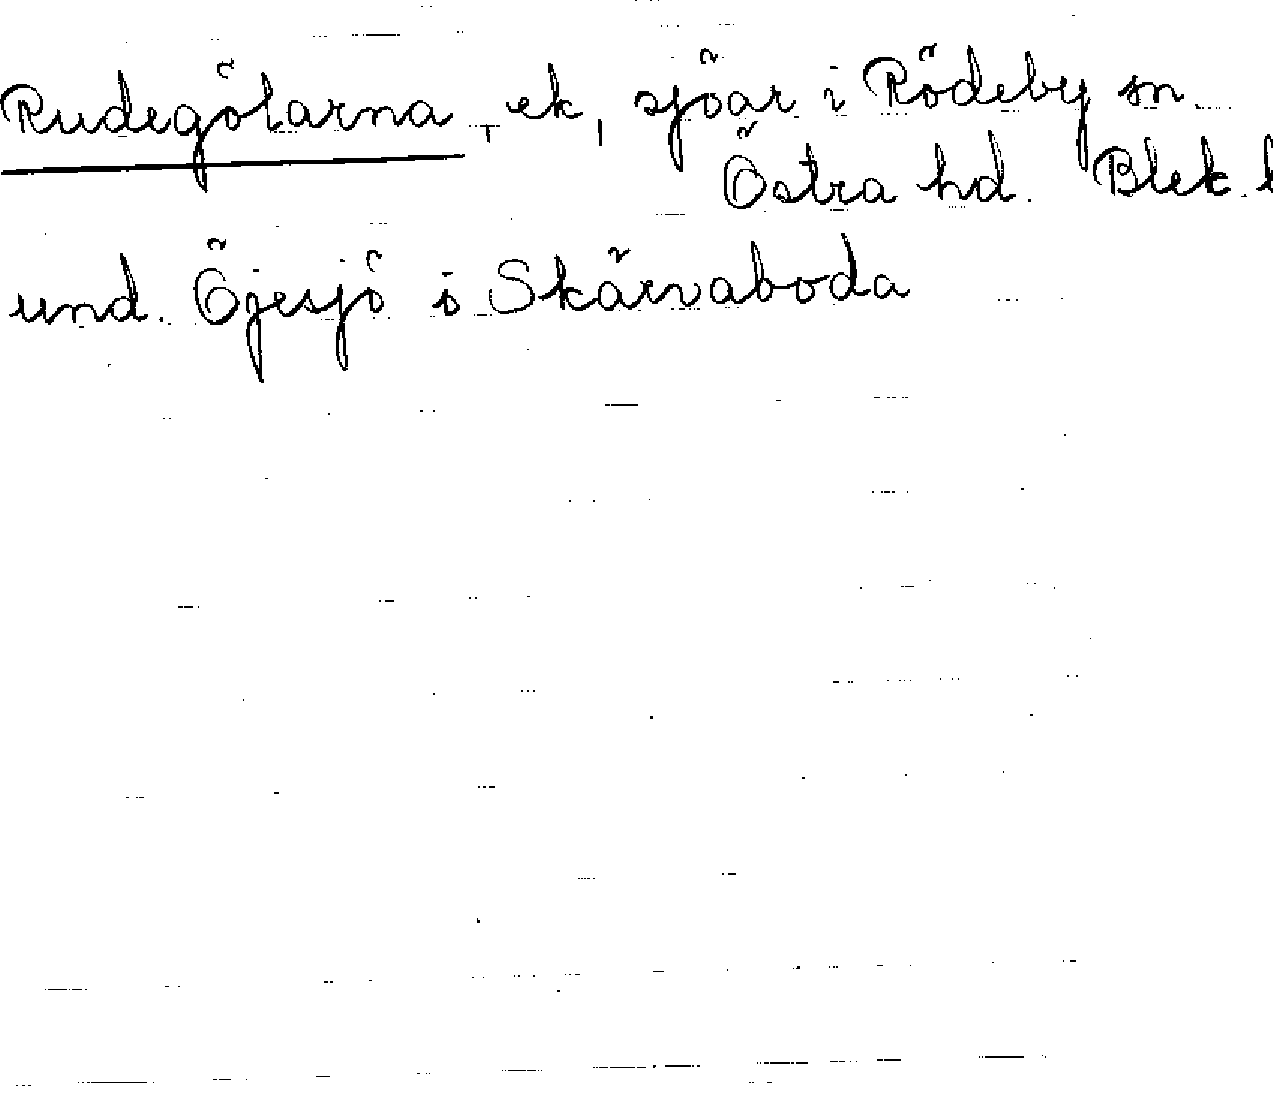 Rudegölarna, ek, sjöar i Rödeby sn
Östra hd. Blek. l
und. Öjesjö i Skärvaboda